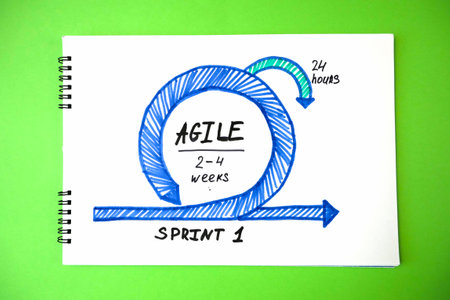 AGILE
2-4
weeks
24
hours
SPRINT 1